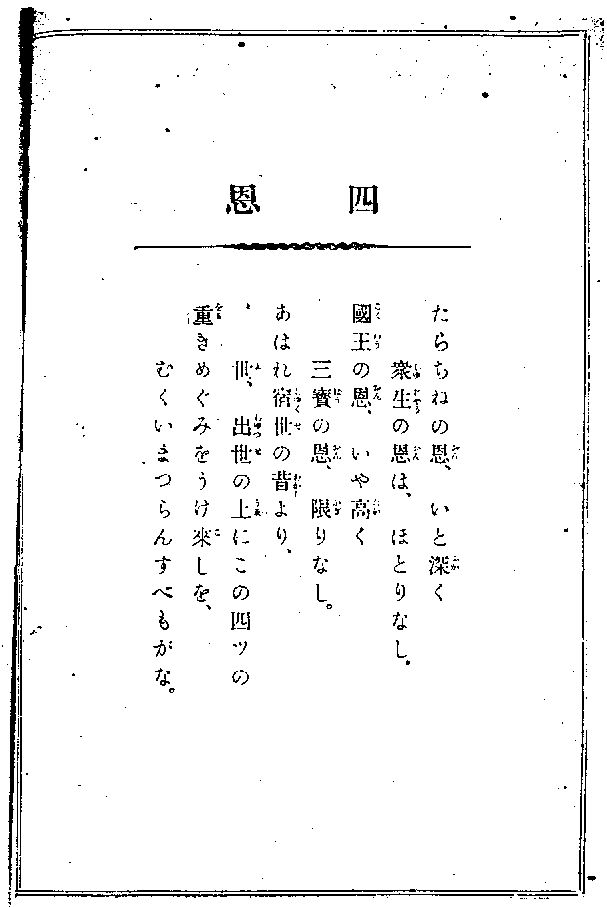 四恩
たらちねの恩、いと深く
衆生の恩は、ほとりなし。
國王の恩、いや高く
三寶の恩、限りなし。
あはれ宿世の昔より、
世、出世の上にこの四ツの
重きめぐみをうけ來しを、
むくいまつらんすべもがな。